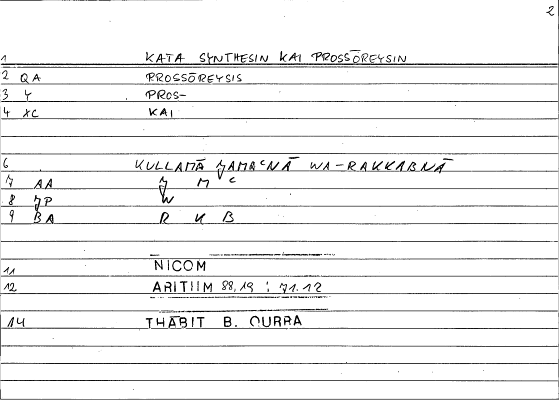 2
1 KATA SYNTHESIN KAI PROSSŌREYSIN
2 QA PROSSŌREYSIS
3 Y PROS-
4 XC KAI
6 KULLAMĀ ǦAMAʿNĀ WA-RAKKABNĀ
7 AA Ǧ M ʿ
8 W
9 BA R K B
11 NICOM
12 ARITIIM 88,19 : 71.12
14 THĀBIT B. QURRA